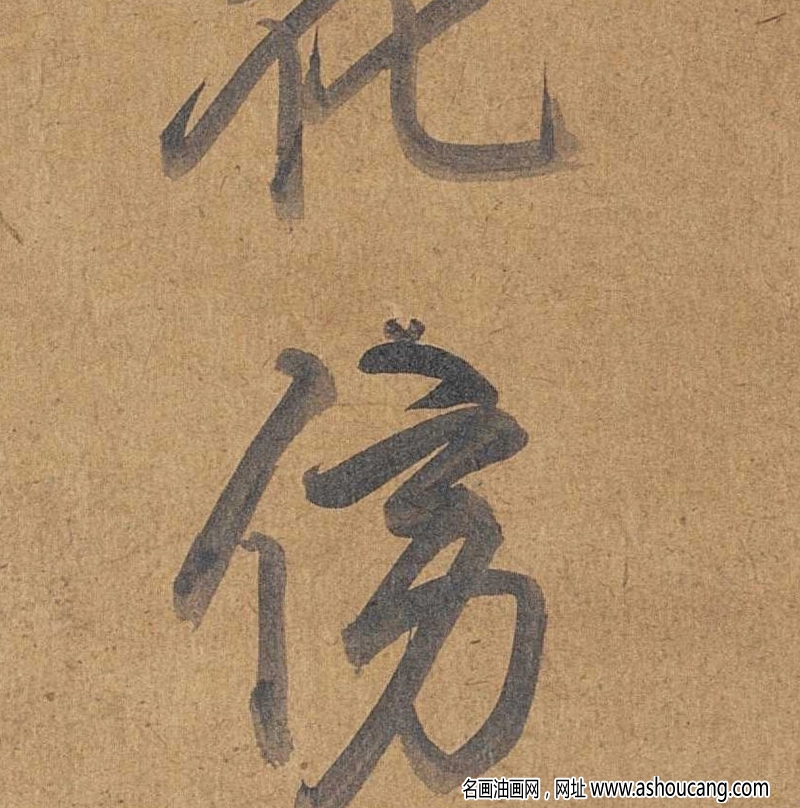 花
傍
名画油画网，网址 www.ashoucang.com